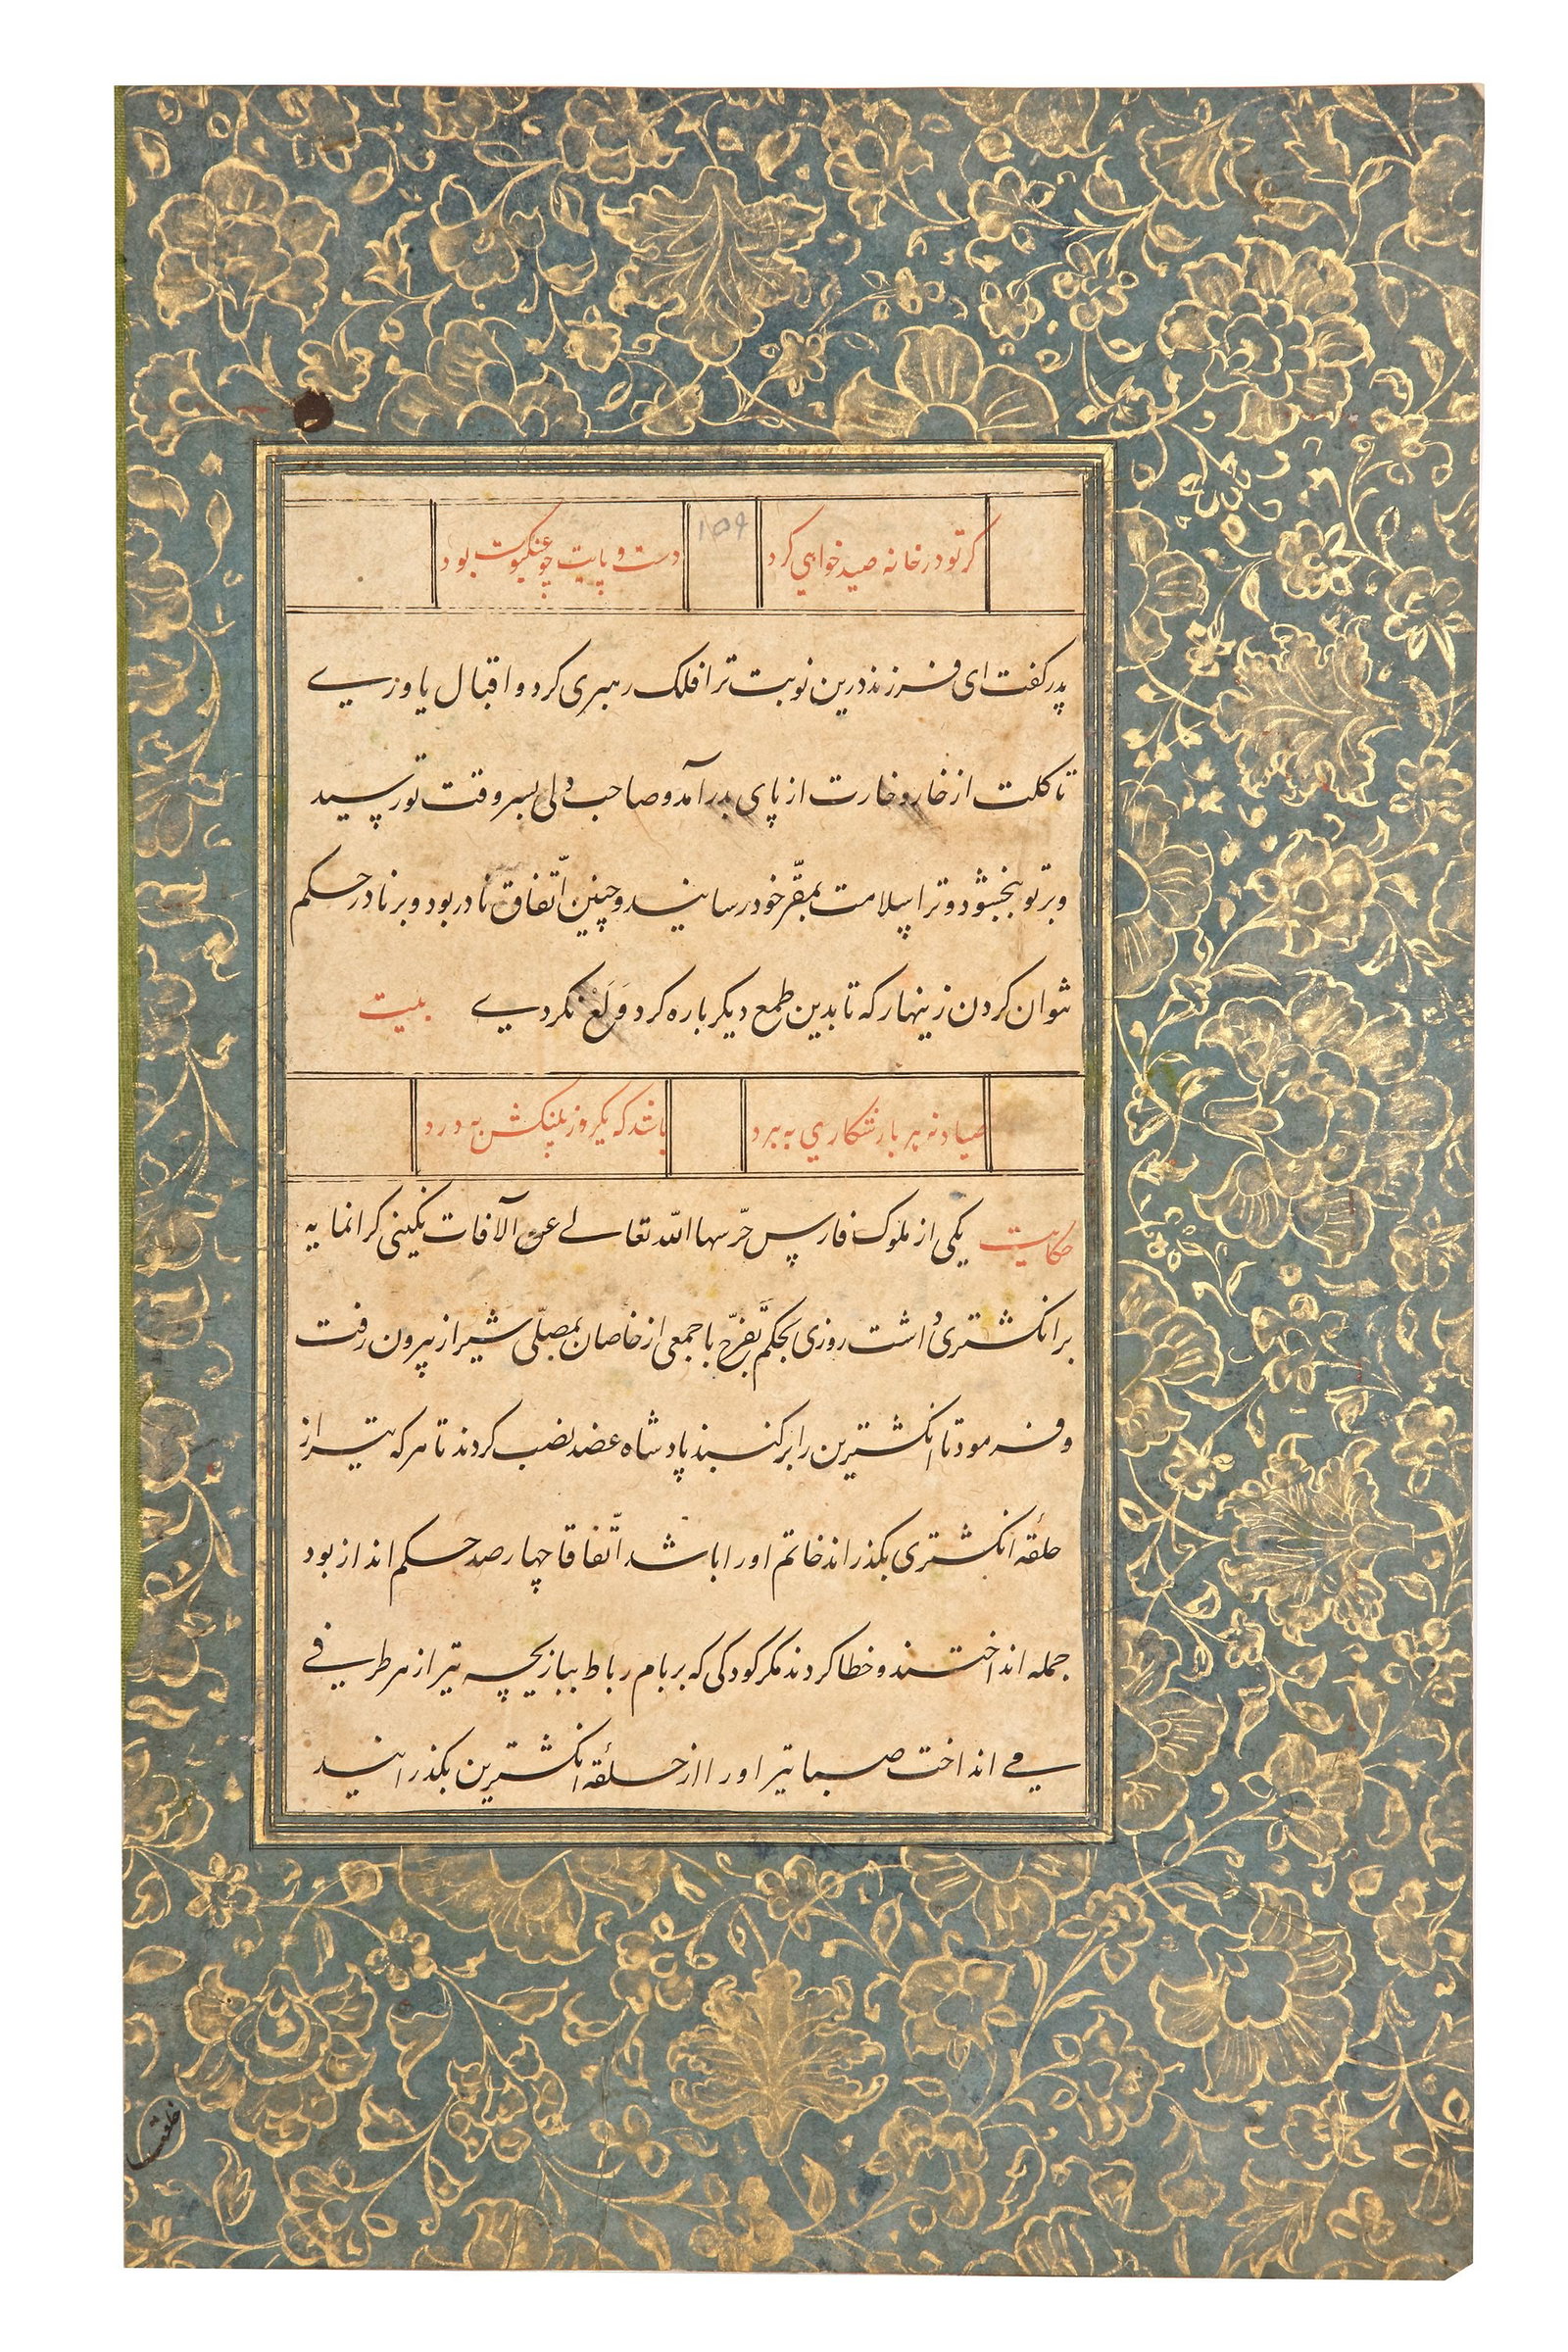 گر تو در خانه صید خواهی کرد
دست و پایت چو عنکبوت بود
۱۵۹
پدر گفت ای فرزند درین نوبت ترا فلک رهبری کرد و اقبال یاوری
تا گلت از خار و خارت از پای بدر آمد و صاحب دولی بسر وقت تو رسید
و بر تو ببخشود و ترا بسلامت بمقرّ خود رسانید و چنین اتّفاق نادر بود و بر نادر حکم
نتوان کردن زینهار که تا بدین طمع دیگر باره کرد وَلَع نکردی بیت
صیاد نه هر بار شکاری به برد
باشد که یکروز پلنگش به درد
حکایت یکی از ملوک فارس حرّسها الله تعالی عن الآفات نگینی گرانمایه
بر انگشتری داشت روزی بحکم تفرّج با جمعی از خاصان بمصلّی شیراز بیرون رفت
و فرمود تا انگشترین را بر گنبد پادشاه عضد نصب کردند تا هر که تیر از
حلقهٔ انگشتری بگذراند خاتم او را باشد اتّفاقا چهار صد حکم انداز بود
جمله انداختند و خطا کردند مگر کودکی که بر بام رباط ببازیچه تیر از هر طرفی
می انداخت صبا تیر او را از حلقهٔ انگشترین بگذرانید